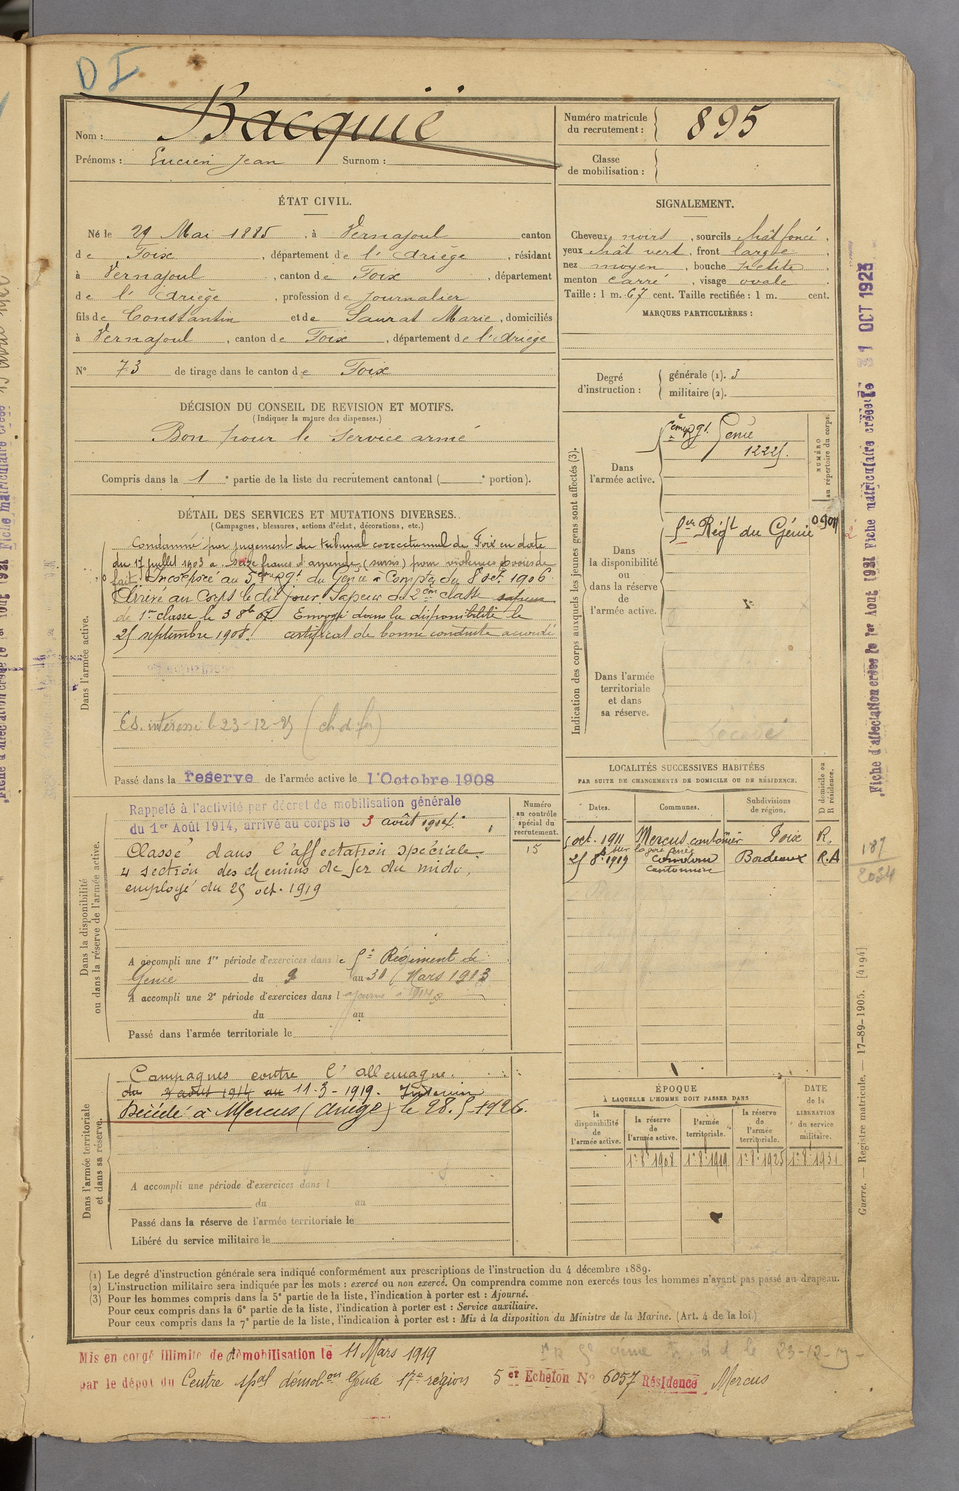 D I
Nom : Bacquié
Prénoms : Lucien Jean Surnom :
Numéro matricule du recrutement : 895
Classe de mobilisation :
ÉTAT CIVIL.
Né le 29 Mai 1885, à Vernajoul canton
de Foix, département de l'Ariège, résidant
à Vernajoul, canton de Foix, département
de l'Ariège, profession de journalier
fils de Constantin et de Saurat Marie, domiciliés
à Vernajoul, canton de Foix, département de l'Ariège
N° 73 de tirage dans le canton de Foix
SIGNALEMENT.
Cheveux noirs, sourcils chât foncé,
yeux chât vert, front large,
nez moyen, bouche petite,
menton carré, visage ovale
Taille : 1 m. 67 cent. Taille rectifiée : 1 m. cent.
MARQUES PARTICULIÈRES :
Degré d'instruction :
générale (1). 3
militaire (2).
DÉCISION DU CONSEIL DE REVISION ET MOTIFS.
(Indiquer la nature des dispenses.)
Bon pour le Service armé
Compris dans la 1e partie de la liste du recrutement cantonal ( e portion).
DÉTAIL DES SERVICES ET MUTATIONS DIVERSES.
(Campagnes, blessures, actions d'éclat, décorations, etc.)
Dans l'armée active.
Condamné par jugement du tribunal correctionnel de Foix en date
du 17 juillet 1903 à seize francs d'amende (sursis) pour violences et voies de
fait. Incorporé au Rgt du Génie à Compter du 8 oct. 1906
Arrivé au Corps le dit jour. Sapeur de 2ème classe sapeur
de 1re classe le 3 8bre 07 Envoyé dans la disponibilité le
25 septembre 1908. certificat de bonne conduite accordé
Passé dans la réserve de l'armée active le 1 Octobre 1908
Indication des corps auxquels les jeunes gens sont affectés (3).
NUMÉRO au répertoire du corps.
Dans l'armée active.
Génie
Dans la disponibilité ou dans la réserve de l'armée active.
Régt du Génie
Dans l'armée territoriale et dans sa réserve.
Décédé
Dans la disponibilité ou dans la réserve de l'armée active.
Rappelé à l'activité par décret de mobilisation générale
du 1er Août 1914, arrivé au corps le 3 août 1914.
Classé dans l'affectation spéciale
4 section des chemins de fer du midi,
employé du 25 oct. 1919
Numéro au contrôle spécial du recrutement.
15
A accompli une 1re période d'exercices dans le Régiment de
Génie du 9 au 31 Mars 1913
A accompli une 2e période d'exercices dans l
du au
Passé dans l'armée territoriale le
LOCALITÉS SUCCESSIVES HABITÉES
PAR SUITE DE CHANGEMENTS DE DOMICILE OU DE RÉSIDENCE.
Dates. Communes. Subdivisions de région. D domicile ou R résidence.
oct. 1911 Mercus cantonnier Foix R.
25 8bre 1919 Bordeaux R.A
cantonnier
187
2034
Dans l'armée territoriale et dans sa réserve.
Campagnes contre l'allemagne.
du 3 août 1914 au 11-3-1919. Intérieur
Décédé à Mercus (Ariège) le 28.5.1926.
A accompli une période d'exercices dans l
du au
Passé dans la réserve de l'armée territoriale le
Libéré du service militaire le
ÉPOQUE
À LAQUELLE L'HOMME DOIT PASSER DANS
la disponibilité de l'armée active. la réserve de l'armée active. l'armée territoriale. la réserve de l'armée territoriale.
DATE de la LIBÉRATION du service militaire.
(1) Le degré d'instruction générale sera indiqué conformément aux prescriptions de l'instruction du 4 décembre 1889.
(2) L'instruction militaire sera indiquée par les mots : exercé ou non exercé. On comprendra comme non exercés tous les hommes n'ayant pas passé au drapeau.
(3) Pour les hommes compris dans la 5e partie de la liste, l'indication à porter est : Ajourné.
Pour ceux compris dans la 6e partie de la liste, l'indication à porter est : Service auxiliaire.
Pour ceux compris dans la 7e partie de la liste, l'indication à porter est : Mis à la disposition du Ministre de la Marine. (Art. 4 de la loi.)
Mis en congé illimité de démobilisation le 11 Mars 1919
par le dépôt du Centre spal démobon Génie 17e région 5er Echelon N° 6057 Résidence Mercus
Fiche d'affectation créée le 1er Août 1921 Fiche matriculaire créée le 31 OCT 1923
Guerre. — Registre matricule. — 17-89-1905. [4194]